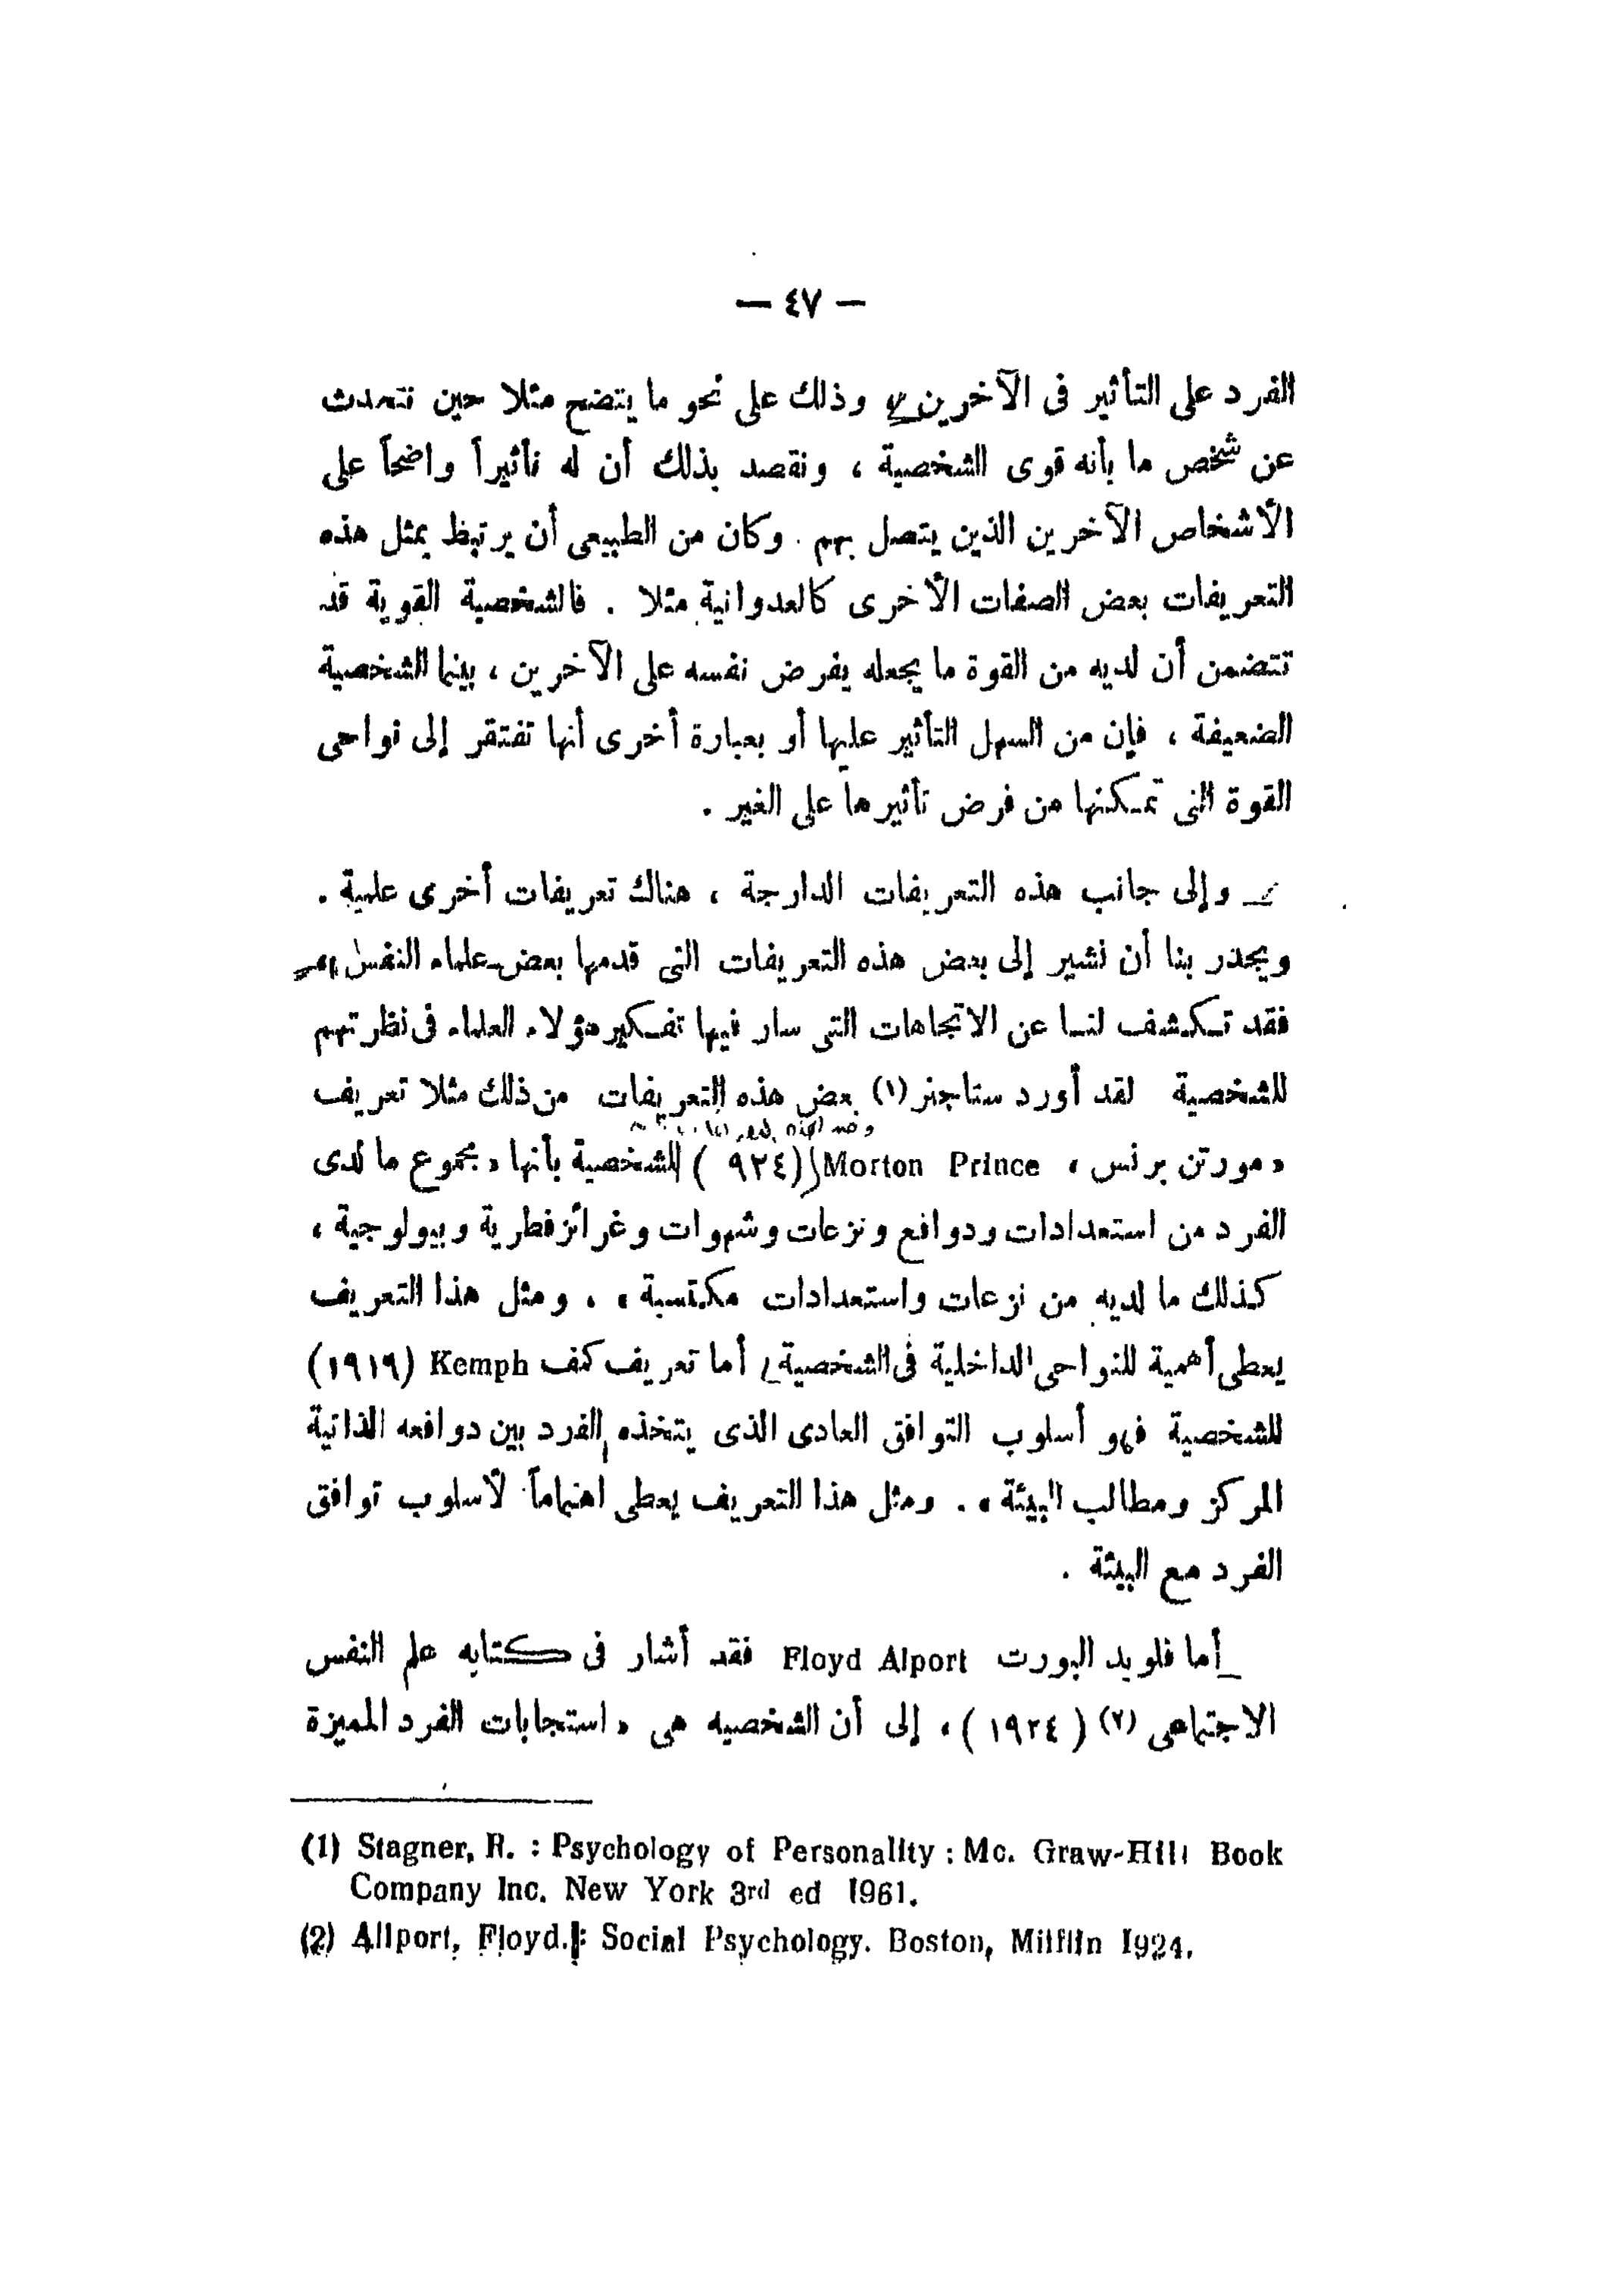 — ٤٧ —
الفرد على التأثير فى الآخرين وذلك على نحو ما يتضح مثلا حين نتحدث
عن شخص ما بأنه قوى الشخصية ، ونقصد بذلك أن له تأثيراً واضحاً على
الأشخاص الآخرين الذين يتصل بهم . وكان من الطبيعى أن يرتبط بمثل هذه
التعريفات بعض الصفات الأخرى كالعدوانية مثلا . فالشخصية القوية قد
تتضمن أن لديه من القوة ما يجعله يفرض نفسه على الآخرين ، بينما الشخصية
الضعيفة ، فإن من السهل التأثير عليها أو بعبارة أخرى أنها تفتقر إلى نواحى
القوة التى تمكنها من فرض تأثيرها على الغير .
وإلى جانب هذه التعريفات الدارجة ، هناك تعريفات أخرى علمية .
ويجدر بنا أن نشير إلى بعض هذه التعريفات التى قدمها بعض علماء النفس
فقد تكشف لنا عن الاتجاهات التى سار فيها تفكير هؤلاء العلماء فى نظرتهم
للشخصية لقد أورد ستاجنر (١) بعض هذه التعريفات من ذلك مثلا تعريف
« مورتن برنس » Morton Prince (٩٢٤ ) للشخصية بأنها « مجموع ما لدى
الفرد من استعدادات ودوافع ونزعات وشهوات وغرائز فطرية وبيولوجية ،
كذلك ما لديه من نزعات واستعدادات مكتسبة » ، ومثل هذا التعريف
يعطى أهمية للنواحى الداخلية فى الشخصية أما تعريف كمف Kemph (١٩١٩)
للشخصية فهو أسلوب التوافق العادى الذى يتخذه الفرد بين دوافعه الذاتية
المركز ومطالب البيئة » . ومثل هذا التعريف يعطى اهتماماً لأسلوب توافق
الفرد مع البيئة .
أما فلويد البورت Floyd Alport فقد أشار فى كتابه علم النفس
الاجتماعى (٢) ( ١٩٢٤ ) ، إلى أن الشخصيه هى « استجابات الفرد المميزة
(1) Stagner, R. : Psychology of Personality : Mc. Graw-Hill Book
Company Inc. New York 3rd ed 1961.
(2) Allport, Floyd. : Social Psychology. Boston, Mifflin 1924.